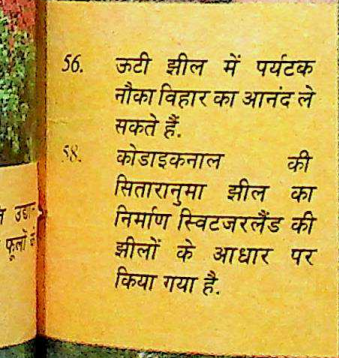 56. ऊटी झील में पर्यटक
नौका विहार का आनंद ले
सकते हैं.
58. कोडाइकनाल की
सितारानुमा झील का
निर्माण स्विटजरलैंड की
झीलों के आधार पर
किया गया है.